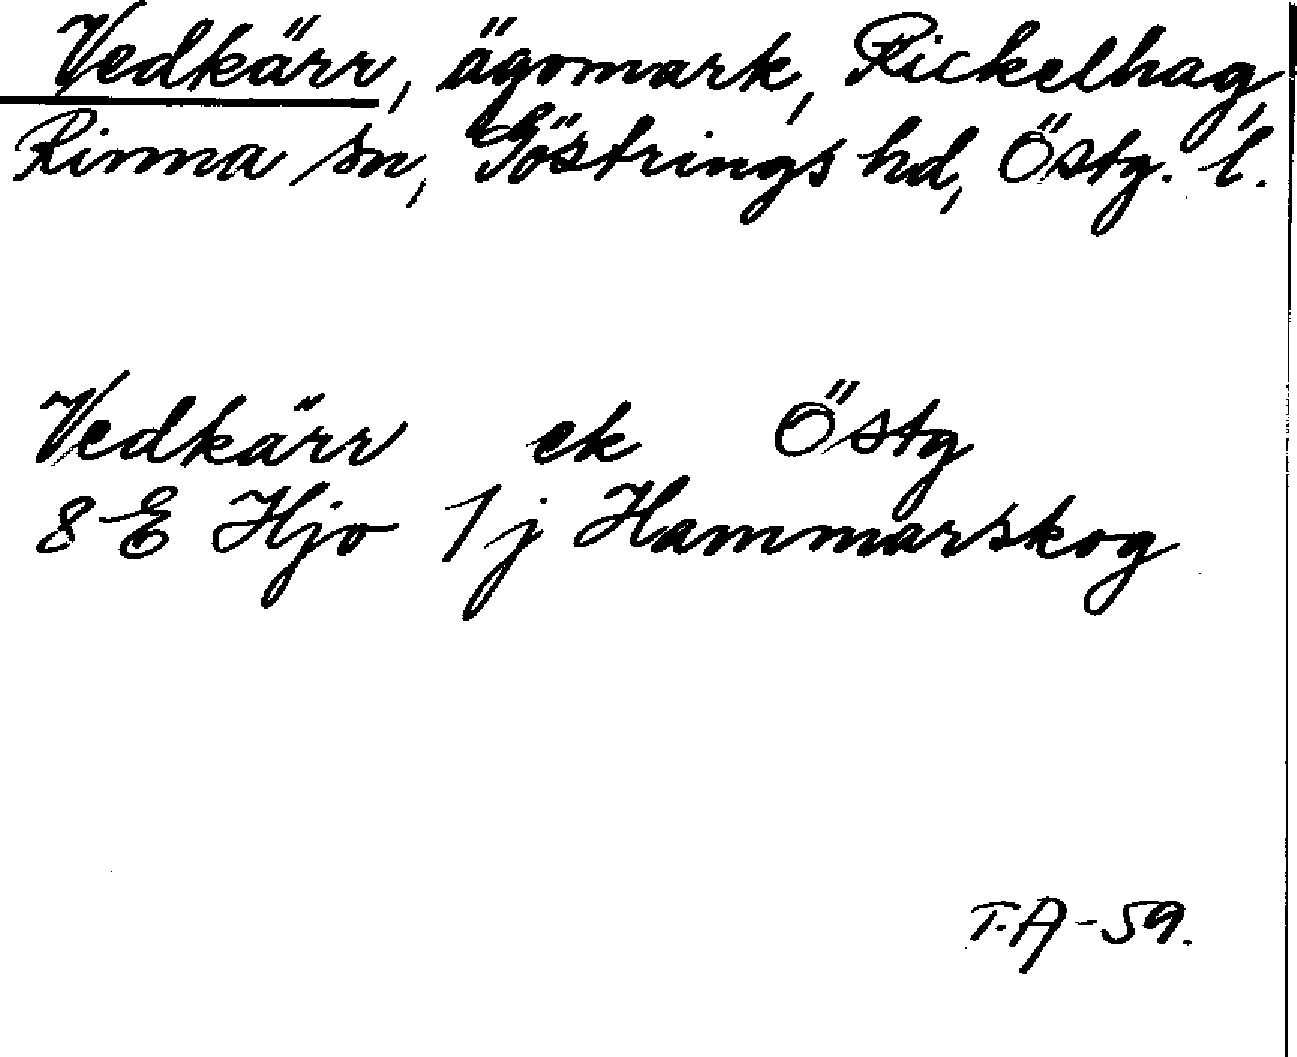 Vedkärr, ägomark, Rickelhag,
Rinna sn, Göstrings hd, Östg. l.
Vedkärr ek Östg
8 E Hjo 1j Hammarskog
T.A-59.